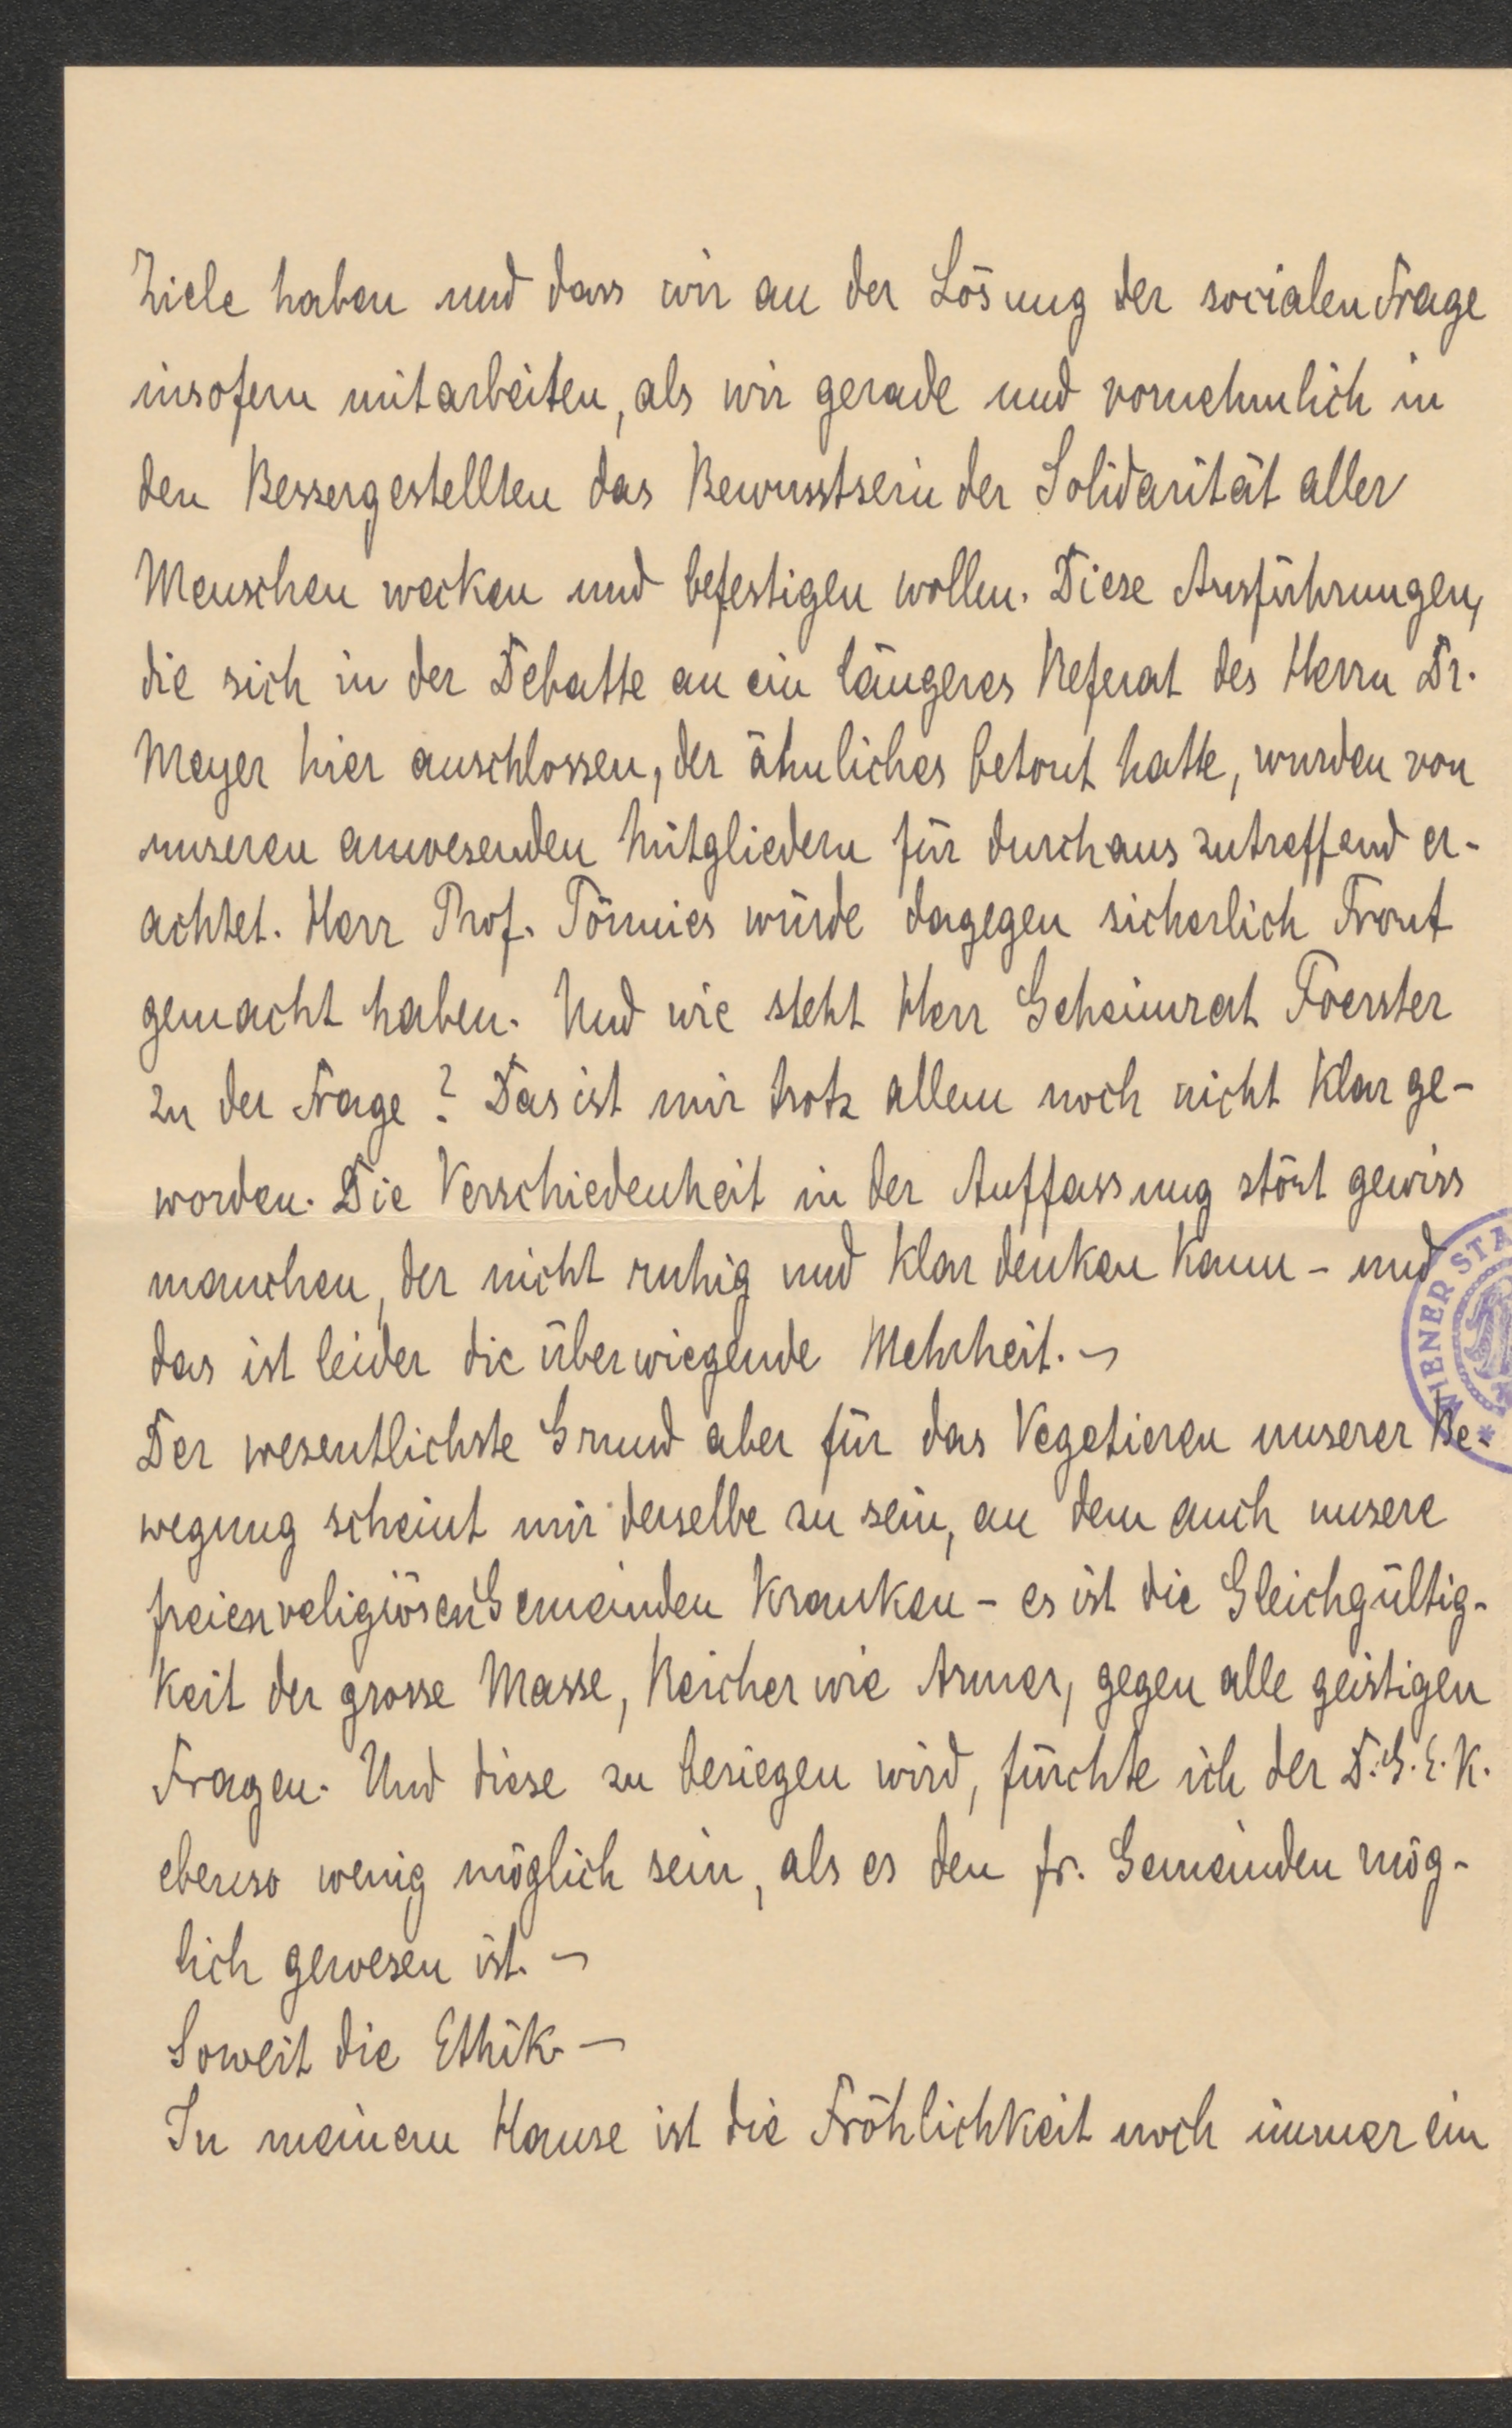 Ziele haben und dass wir an der Lösung der socialen Frage
insofern mitarbeiten, als wir gerade und vornehmlich in
den Bessergestellten das Bewusstsein der Solidarität aller
Menschen wecken und befestigen wollen. Diese Ausführungen,
die sich in der Debatte an ein längeres Referat des Herrn Dr.
Meyer hier anschlossen, der ähnliches betont hatte, wurden von
unseren anwesenden Mitgliedern für durchaus zutreffend er-
achtet. Herr Prof. Tönnies würde dagegen sicherlich Front
gemacht haben. Und wie steht Herr Geheimrat Foerster
zu der Frage? Das ist mir trotz allem noch nicht klar ge-
worden. Die Verschiedenheit in der Auffassung stört gewiss
manchen, der nicht ruhig und klar denken kann - und
das ist leider die überwiegende Mehrheit. -
Der wesentlichste Grund aber für das Vegetieren unserer Be-
wegung scheint mir derselbe zu sein, an dem auch unsere
freien religiösen Gemeinden kranken - es ist die Gleichgültig-
keit der grosse Masse, Reicher wie Armer, gegen alle geistigen
Fragen. Und diese zu besiegen wird, fürchte ich der D.G.E.K.
ebenso wenig möglich sein, als es den fr. Gemeinden mög-
lich gewesen ist. -
Soweit die Ethik -
In meinem Hause ist die Fröhlichkeit noch immer ein
WIENER STA